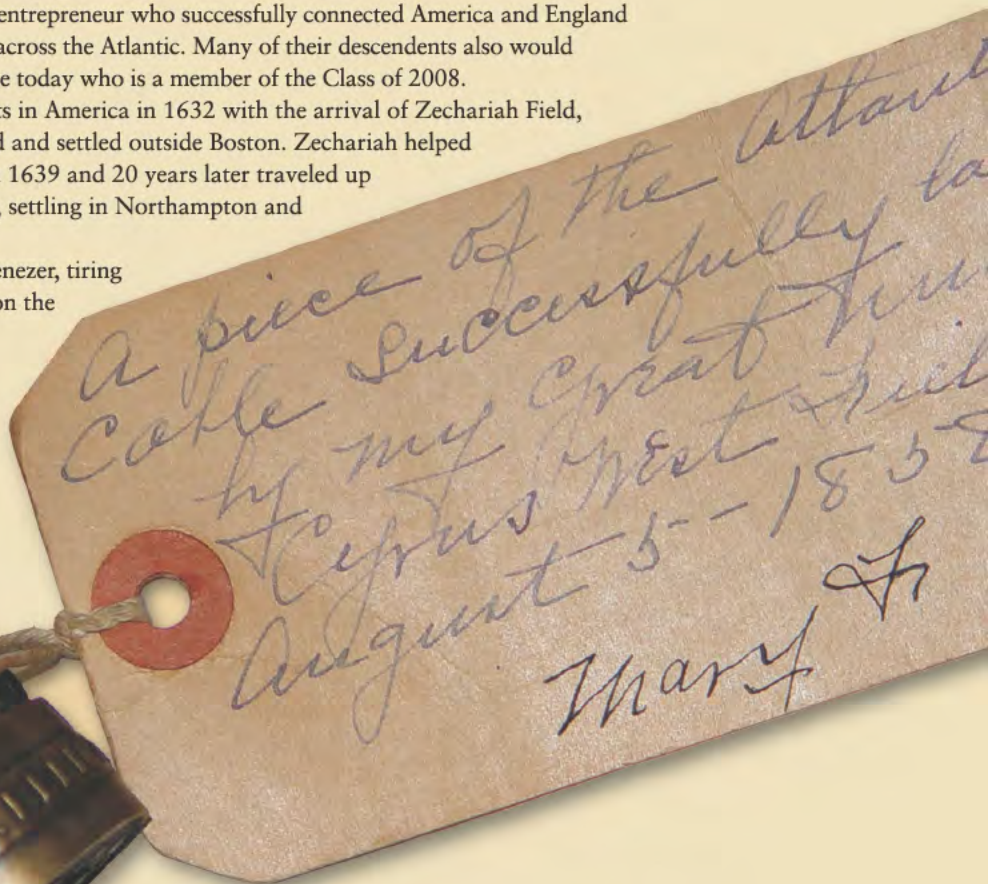 entrepreneur who successfully connected America and England
across the Atlantic. Many of their descendents also would
e today who is a member of the Class of 2008.
ts in America in 1632 with the arrival of Zechariah Field,
d and settled outside Boston. Zechariah helped
1639 and 20 years later traveled up
, settling in Northampton and
enezer, tiring
on the
A piece of the Atlant
Cable Successfully la
by my Great
Cyrus West Fiel
August 5-1858
Mary